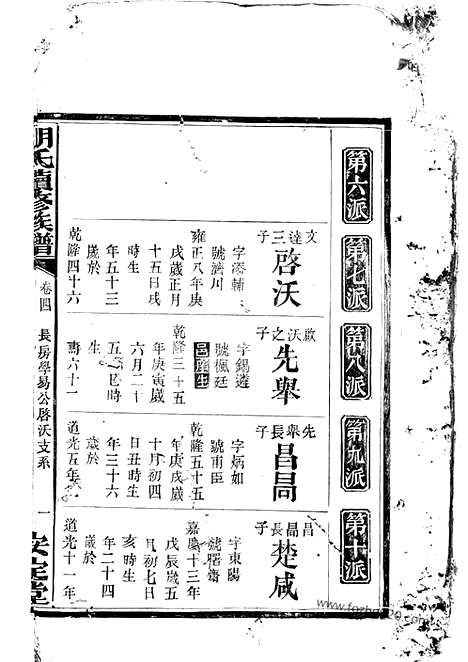 第六派
第七派
第八派
第九派
第十派
文達三子
啓沃
字添輔
號濟川
雍正八年庚
戌歲正月
十五日戌
時生
年五十三
歲於
乾隆四十六
啟沃之子
先舉
字錫遵
號楓廷
邑庠生
乾隆三十五
年庚寅歲
六月二十
五日巳時
生
壽六十一
先舉長子
昌昺
字炳如
號甫臣
乾隆五十五
年庚戌歲
十月初四
日丑時生
年三十六
歲於
道光五年
昌昺長子
楚咸
字東陽
號曙齋
嘉慶十三年
戊辰歲五
月初七日
亥時生
年二十四
歲於
道光十一年
胡氏續修族譜
卷四
長房學易公啓沃支系
一
安定堂